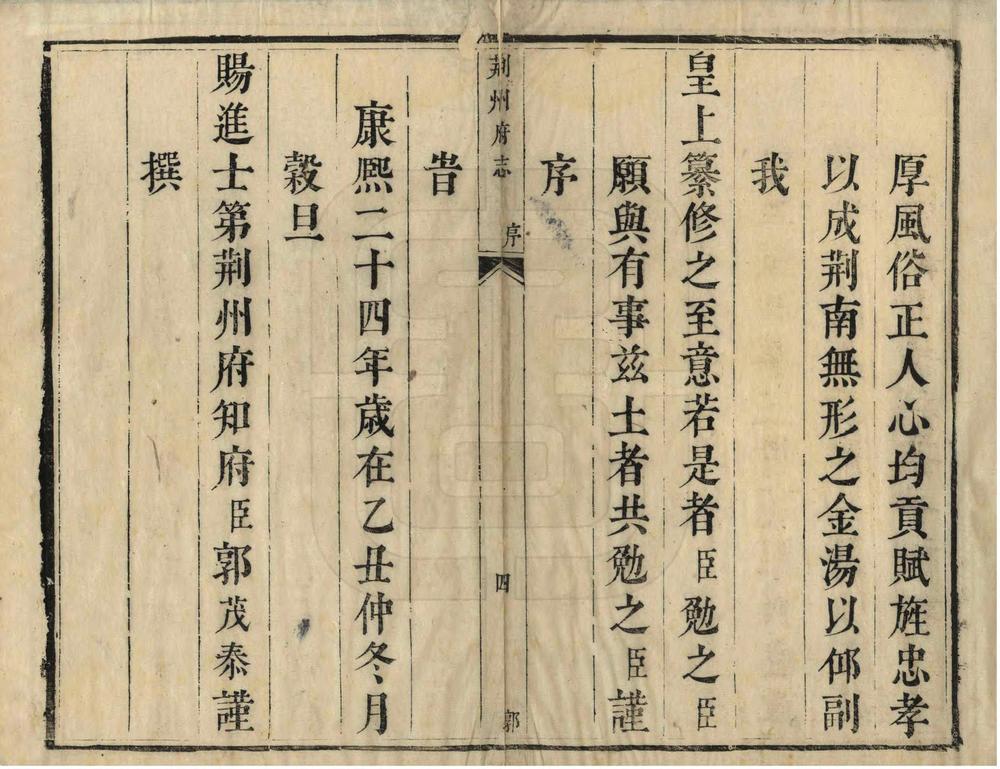 厚風俗正人心均貢賦旌忠孝
以成荆南無形之金湯以仰副
我
皇上纂修之至意若是者臣勉之臣
願與有事兹土者共勉之臣謹
序
荆州府志 序 四 郭
旹
康熙二十四年歲在乙丑仲冬月
穀旦
賜進士第荆州府知府臣郭茂泰謹
撰